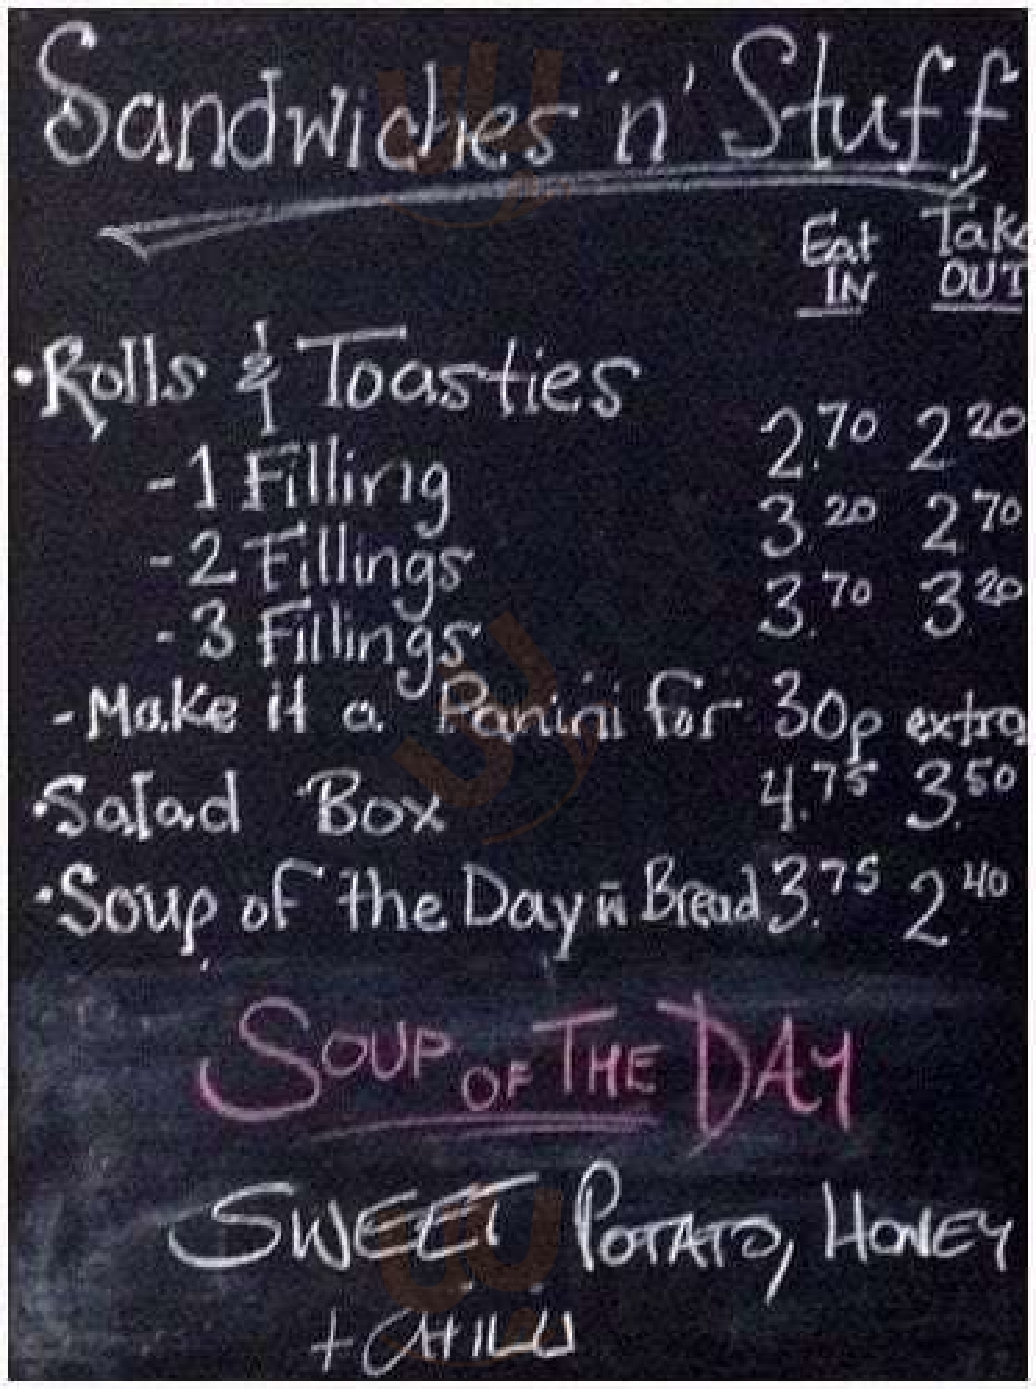 Sandwiches 'n' Stuff
Eat Take
IN OUT
• Rolls & Toasties
- 1 Filling 2.70 2.20
- 2 Fillings 3.20 2.70
- 3 Fillings 3.70 3.20
- Make it a Panini for 30p extra
• Salad Box 4.75 3.50
• Soup of the Day w Bread 3.75 2.40
SOUP OF THE DAY
SWEET POTATO, HONEY
+ CHILLI